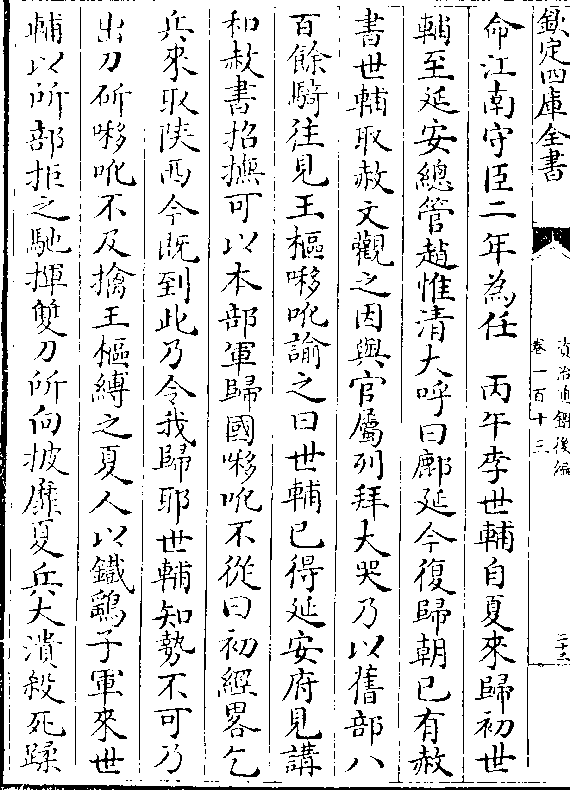 欽定四庫全書
資治通鑑後編
卷一百十三
二十三
命江南守臣二年為任　丙午李世輔自夏來歸初世
輔至延安總管趙惟清大呼曰鄜延今復歸朝已有赦
書世輔取赦文觀之因與官屬列拜大哭乃以舊部八
百餘騎往見王樞㖡吪諭之曰世輔已得延安府見講
和赦書招撫可以本部軍歸國㖡吪不從曰初經畧乞
兵來取陝西今既到此乃令我歸耶世輔知勢不可乃
出刀斫㖡吪不及擒王樞縛之夏人以鐵鷂子軍來世
輔以所部拒之馳揮雙刀所向披靡夏兵大潰殺死蹂